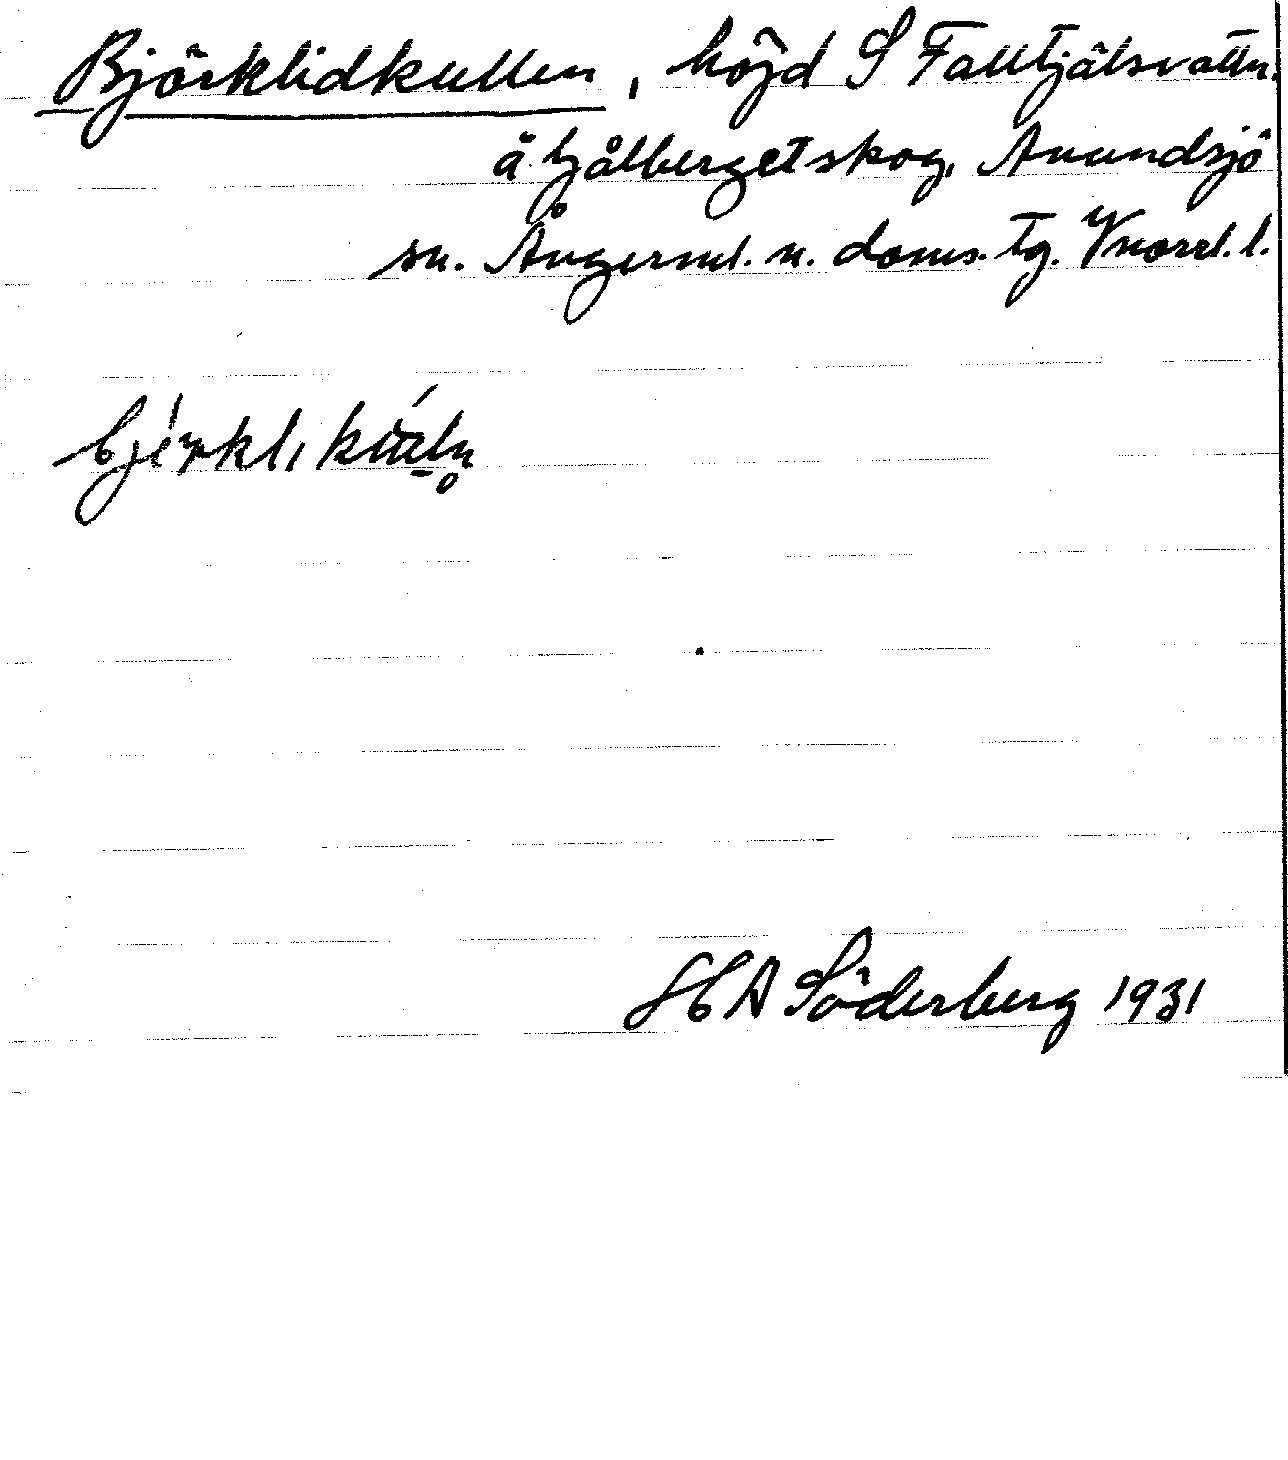 Björklidkullen, höjd S Falltjälsvattn.
å Hjålberget skog, Anundsjö
sn. Ångerml. n. doms. tg. Vnorrl. l.
HA Söderberg 1931